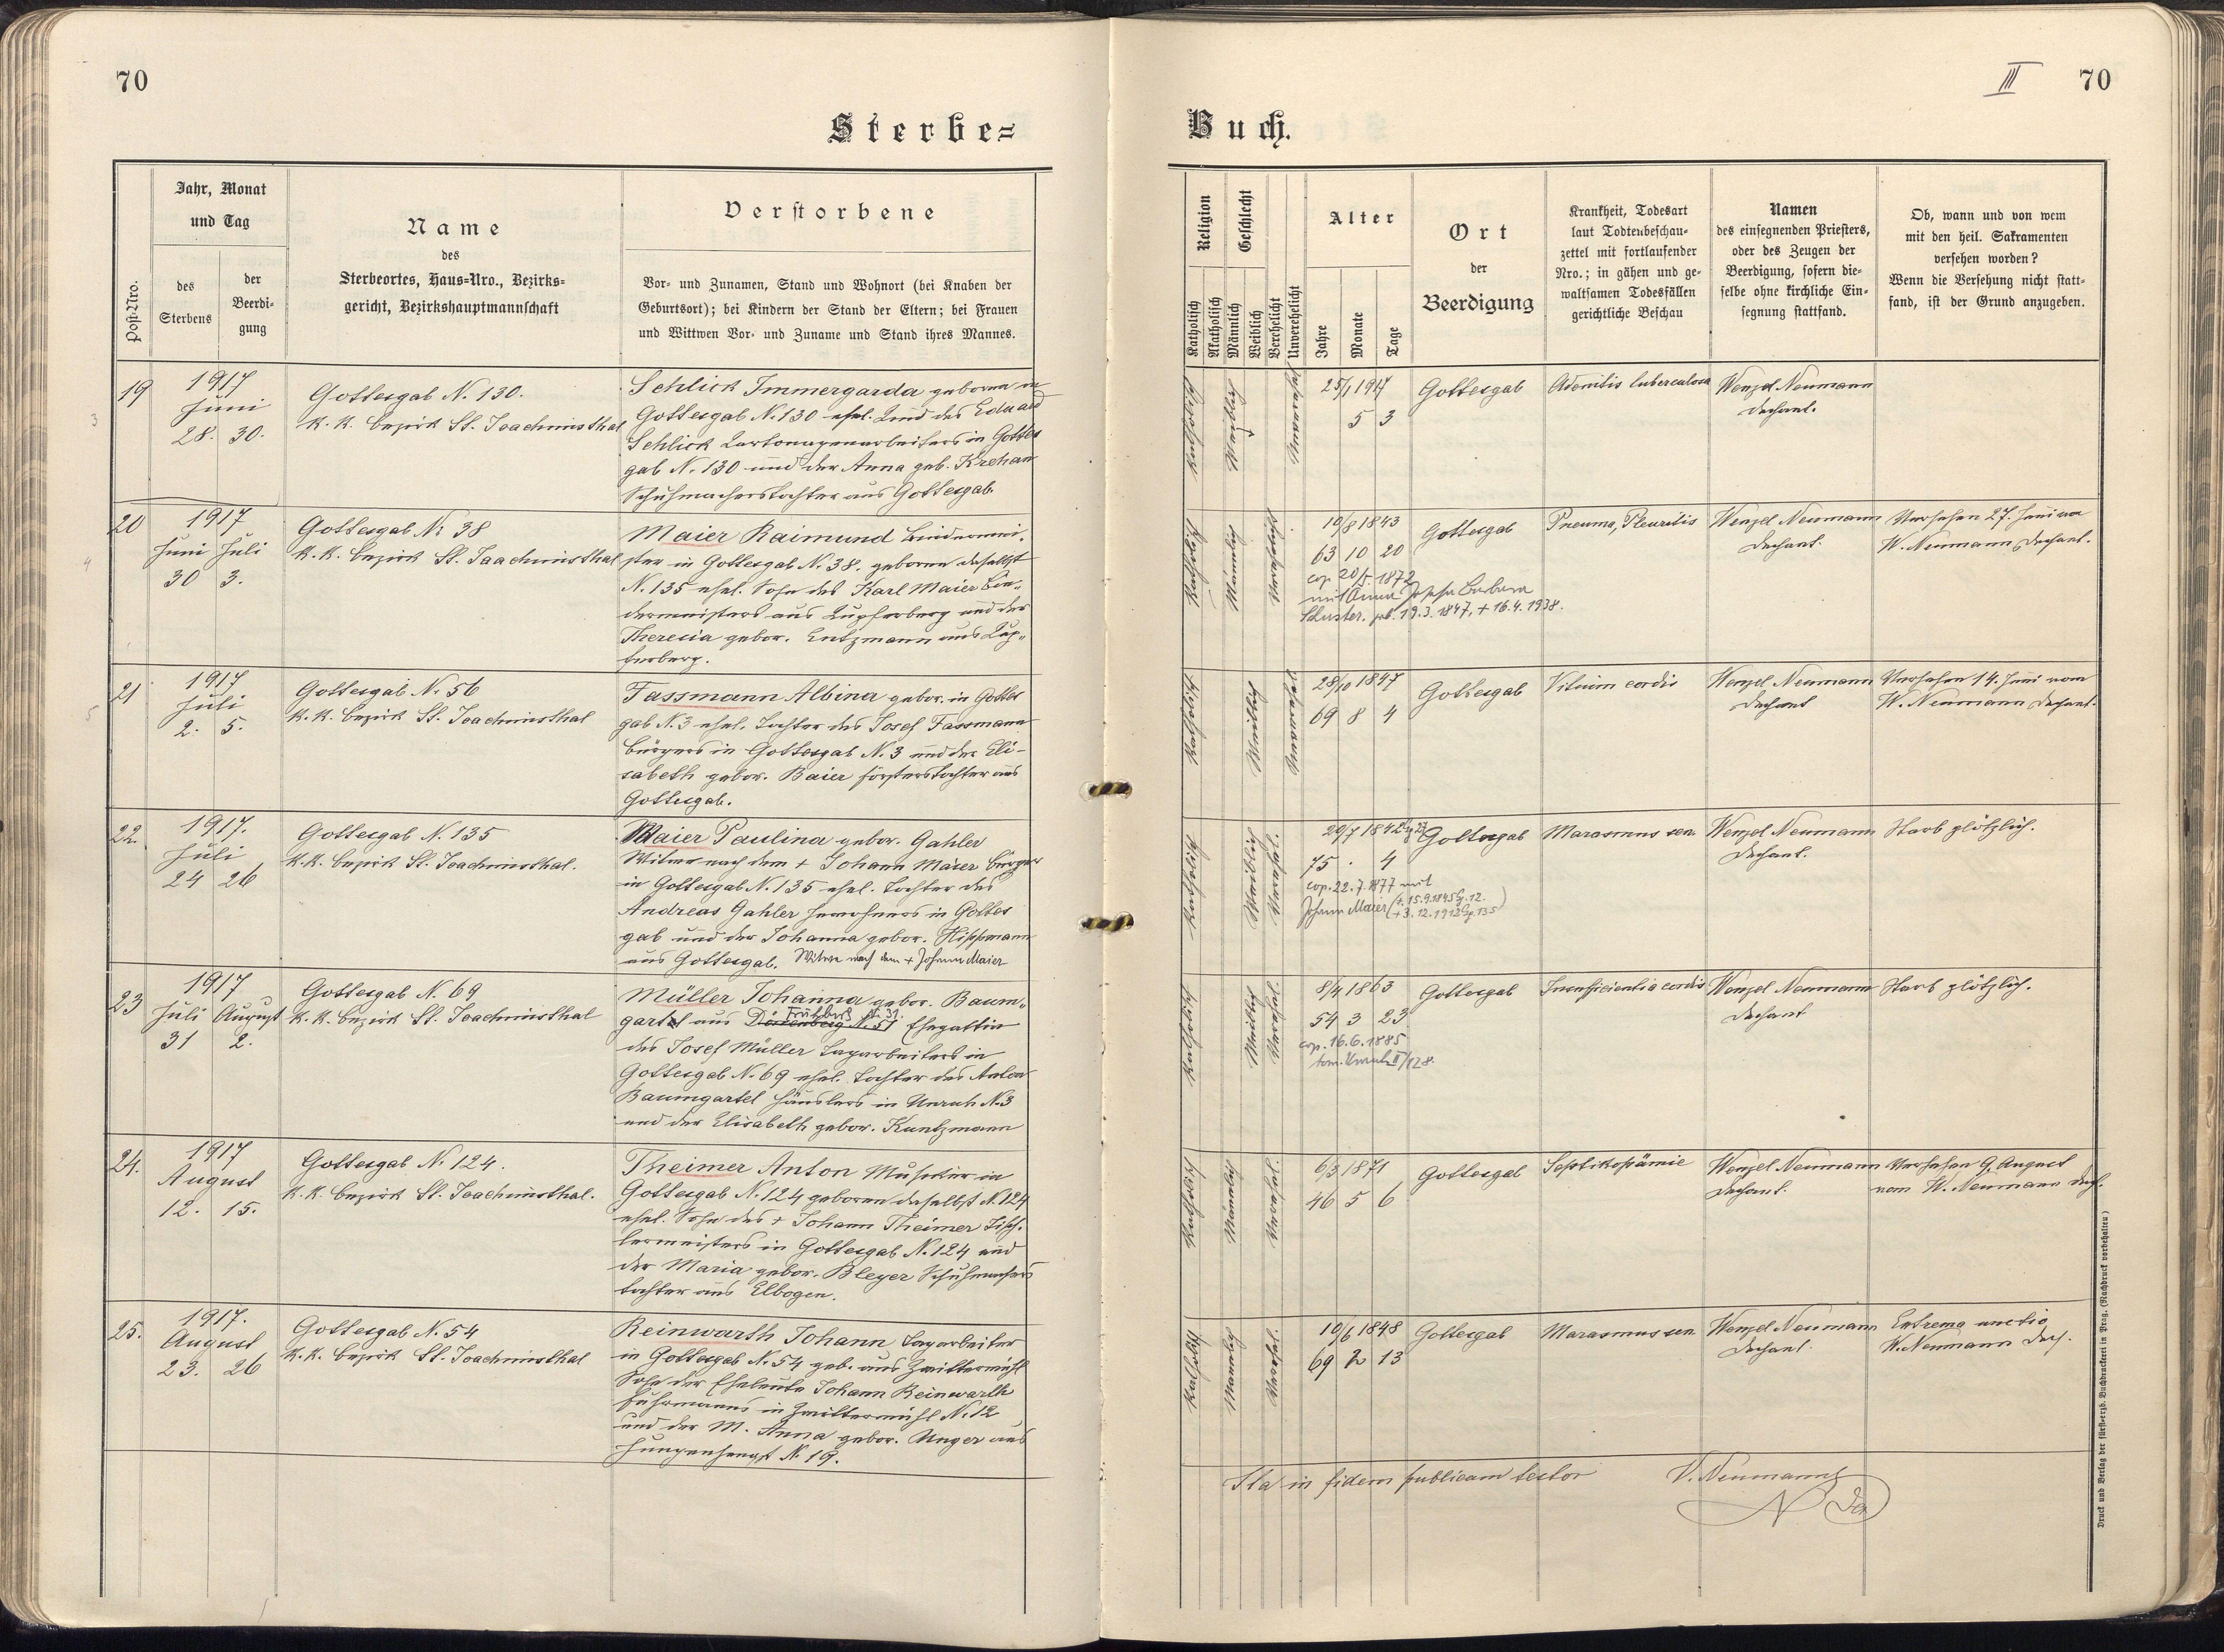 70
Sterbe=
Post-Nro.
Jahr, Monat
und Tag
des
Sterbens
der
Beerdi-
gung
Name
des
Sterbeortes, Haus-Nro., Bezirks-
gericht, Bezirkshauptmannschaft
Verstorbene
Vor- und Zunamen, Stand und Wohnort (bei Knaben der
Geburtsort); bei Kindern der Stand der Eltern; bei Frauen
und Wittwen Vor- und Zuname und Stand ihres Mannes.
19
3
1917
Juni
28. 30.
Gottesgab N. 130.
K. K. Bezirk St. Joachimsthal
Schlick Immergarda geboren in
Gottesgab N. 130 ehel. Kind des Eduard
Schlick Kartonagenarbeiters in Gottes
gab N. 130 und der Anna geb. Krehan
Schuhmacherstochter aus Gottesgab.
20
4
1917
Juni Juli
30 3.
Gottesgab N. 38
K. K. Bezirk St. Joachimsthal
Maier Raimund Bindermei-
ster in Gottesgab N. 38. geboren daselbst
N. 135 ehel. Sohn des Karl Maier Bin-
dermeisters aus Kupferberg und der
Theresia gebor. Entzmann aus Kup-
ferberg.
21
5
1917
Juli
2. 5.
Gottesgab N. 56
K. K. Bezirk St. Joachimsthal
Fassmann Albina gebor. in Gottes
gab N. 3 ehel. Tochter des Josef Fassmann
Bürgers in Gottesgab N. 3 und der Eli-
sabeth gebor. Baier Försterstochter aus
Gottesgab.
22.
1917.
Juli
24 26
Gottesgab N. 135
K. K. Bezirk St. Joachimsthal.
Maier Paulina gebor. Gahler
Witwe nach dem + Johann Maier Bürger
in Gottesgab N. 135 ehel. Tochter des
Andreas Gahler Inwohners in Gottes
gab und der Johanna gebor. Hippmann
aus Gottesgab. Witwe nach dem + Johann Maier
23
1917
Juli August
31 2.
Gottesgab N. 69
K. K. Bezirk St. Joachimsthal
Müller Johanna gebor. Baum-
gartel aus Dürrenberg N. 51 Ehegattin
des Josef Müller Tagarbeiters in
Gottesgab N. 69 ehel. Tochter des Anton
Baumgartel Häuslers in Unruh N. 3
und der Elisabeth gebor. Kuntzmann
24.
1917
August
12. 15.
Gottesgab N. 124.
K. K. Bezirk St. Joachimsthal.
Theimer Anton Musiker in
Gottesgab N. 124 geboren daselbst N. 124
ehel. Sohn des + Johann Theimer Tisch-
lermeisters in Gottesgab N. 124 und
der Maria gebor. Bleyer Schuhmachers
tochter aus Elbogen.
25.
1917.
August
23. 26
Gottesgab N. 54
K. K. Bezirk St. Joachimsthal
Reinwarth Johann Tagarbeiter
in Gottesgab N. 54 geb. aus Zwittermühl
Sohn der Eheleute Johann Reinwarth
Fuhrmanns in Zwittermühl N. 12
und der M. Anna gebor. Unger aus
Jungenhengst N. 19.
III 70
Buch.
Religion
Katholisch
Akatholisch
Geschlecht
Männlich
Weiblich
Verehelicht
Unverehelicht
Alter
Jahre
Monate
Tage
Ort
der
Beerdigung
Krankheit, Todesart
laut Todtenbeschau-
zettel mit fortlaufender
Nro.; in gähen und ge-
waltsamen Todesfällen
gerichtliche Beschau
Namen
des einsegnenden Priesters,
oder des Zeugen der
Beerdigung, sofern die-
selbe ohne kirchliche Ein-
segnung stattfand.
Ob, wann und von wem
mit den heil. Sakramenten
versehen worden?
Wenn die Versehung nicht statt-
fand, ist der Grund anzugeben.
Katholisch
Weiblich
Unverehel.
25/1 1917
5 3
Gottesgab
Adenitis tuberculosa
Wenzel Neumann
Dechant.
Katholisch
Männlich
Verehelicht
10/8 1843
63 10 20
cop. 20/5. 1872
mit Anna Josefa Barbara
Schuster. geb. 19.3.1847, + 16.4.1938.
Gottesgab
Pneumo, Pleuritis
Wenzel Neumann
Dechant.
Versehen 27. Juni von
W. Neumann Dechant.
Katholisch
Weiblich
Unverehel.
28/10 1847
69 8 4
Gottesgab
Vitium cordis
Wenzel Neumann
Dechant
Versehen 14. Juni vom
W. Neumann Dechant.
Katholisch
Weiblich
Verehel.
20/7 1842
75 . 4
cop. 22.7.1877 mit
Johann Maier (* 15.9.1845 Gg. 12.
+ 3.12.1912 Gg. 135)
Gottesgab
Marasmus sen
Wenzel Neumann
Dechant.
Starb plötzlich.
Katholisch
Weiblich
Verehel.
8/4 1863
54 3 23
cop. 16.6.1885
tom. Unruh II/128.
Gottesgab
Insufficientia cordis
Wenzel Neumann
Dechant
Starb plötzlich.
Katholisch
Männlich
Verehel.
6/3 1871
46 5 6
Gottesgab
Septikopämie
Wenzel Neumann
Dechant.
Versehen 9. August
vom W. Neumann Dech.
Katholisch
Männlich
Verehel.
10/6 1848
69 2 13
Gottesgab
Marasmus sen
Wenzel Neumann
Dechant.
Extrema unctio
W. Neumann Dech.
Ita in fidem publicam testor W. Neumann
Druck und Verlag der fürsterzb. Buchdruckerei in Prag. (Nachdruck vorbehalten)